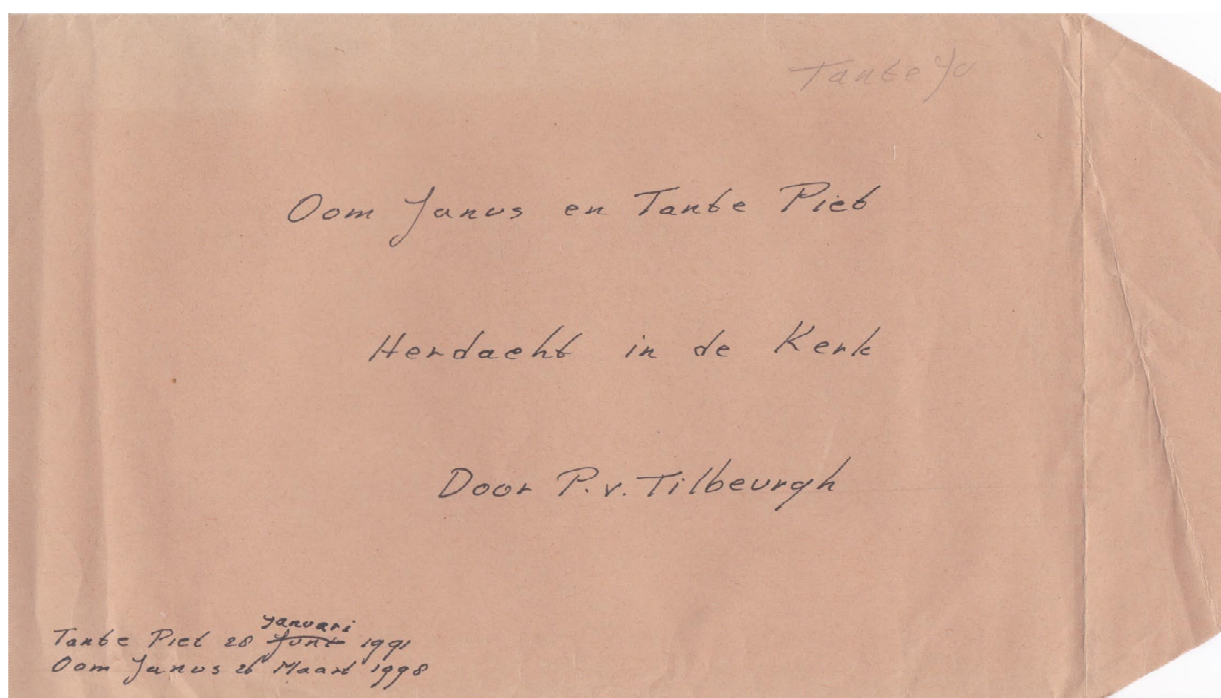 Tante Jo
Oom Janus en Tante Piet
Herdacht in de Kerk
Door P.v.Tilbeurgh
januari
Tante Piet 28 Juni 1991
Oom Janus 26 Maart 1998